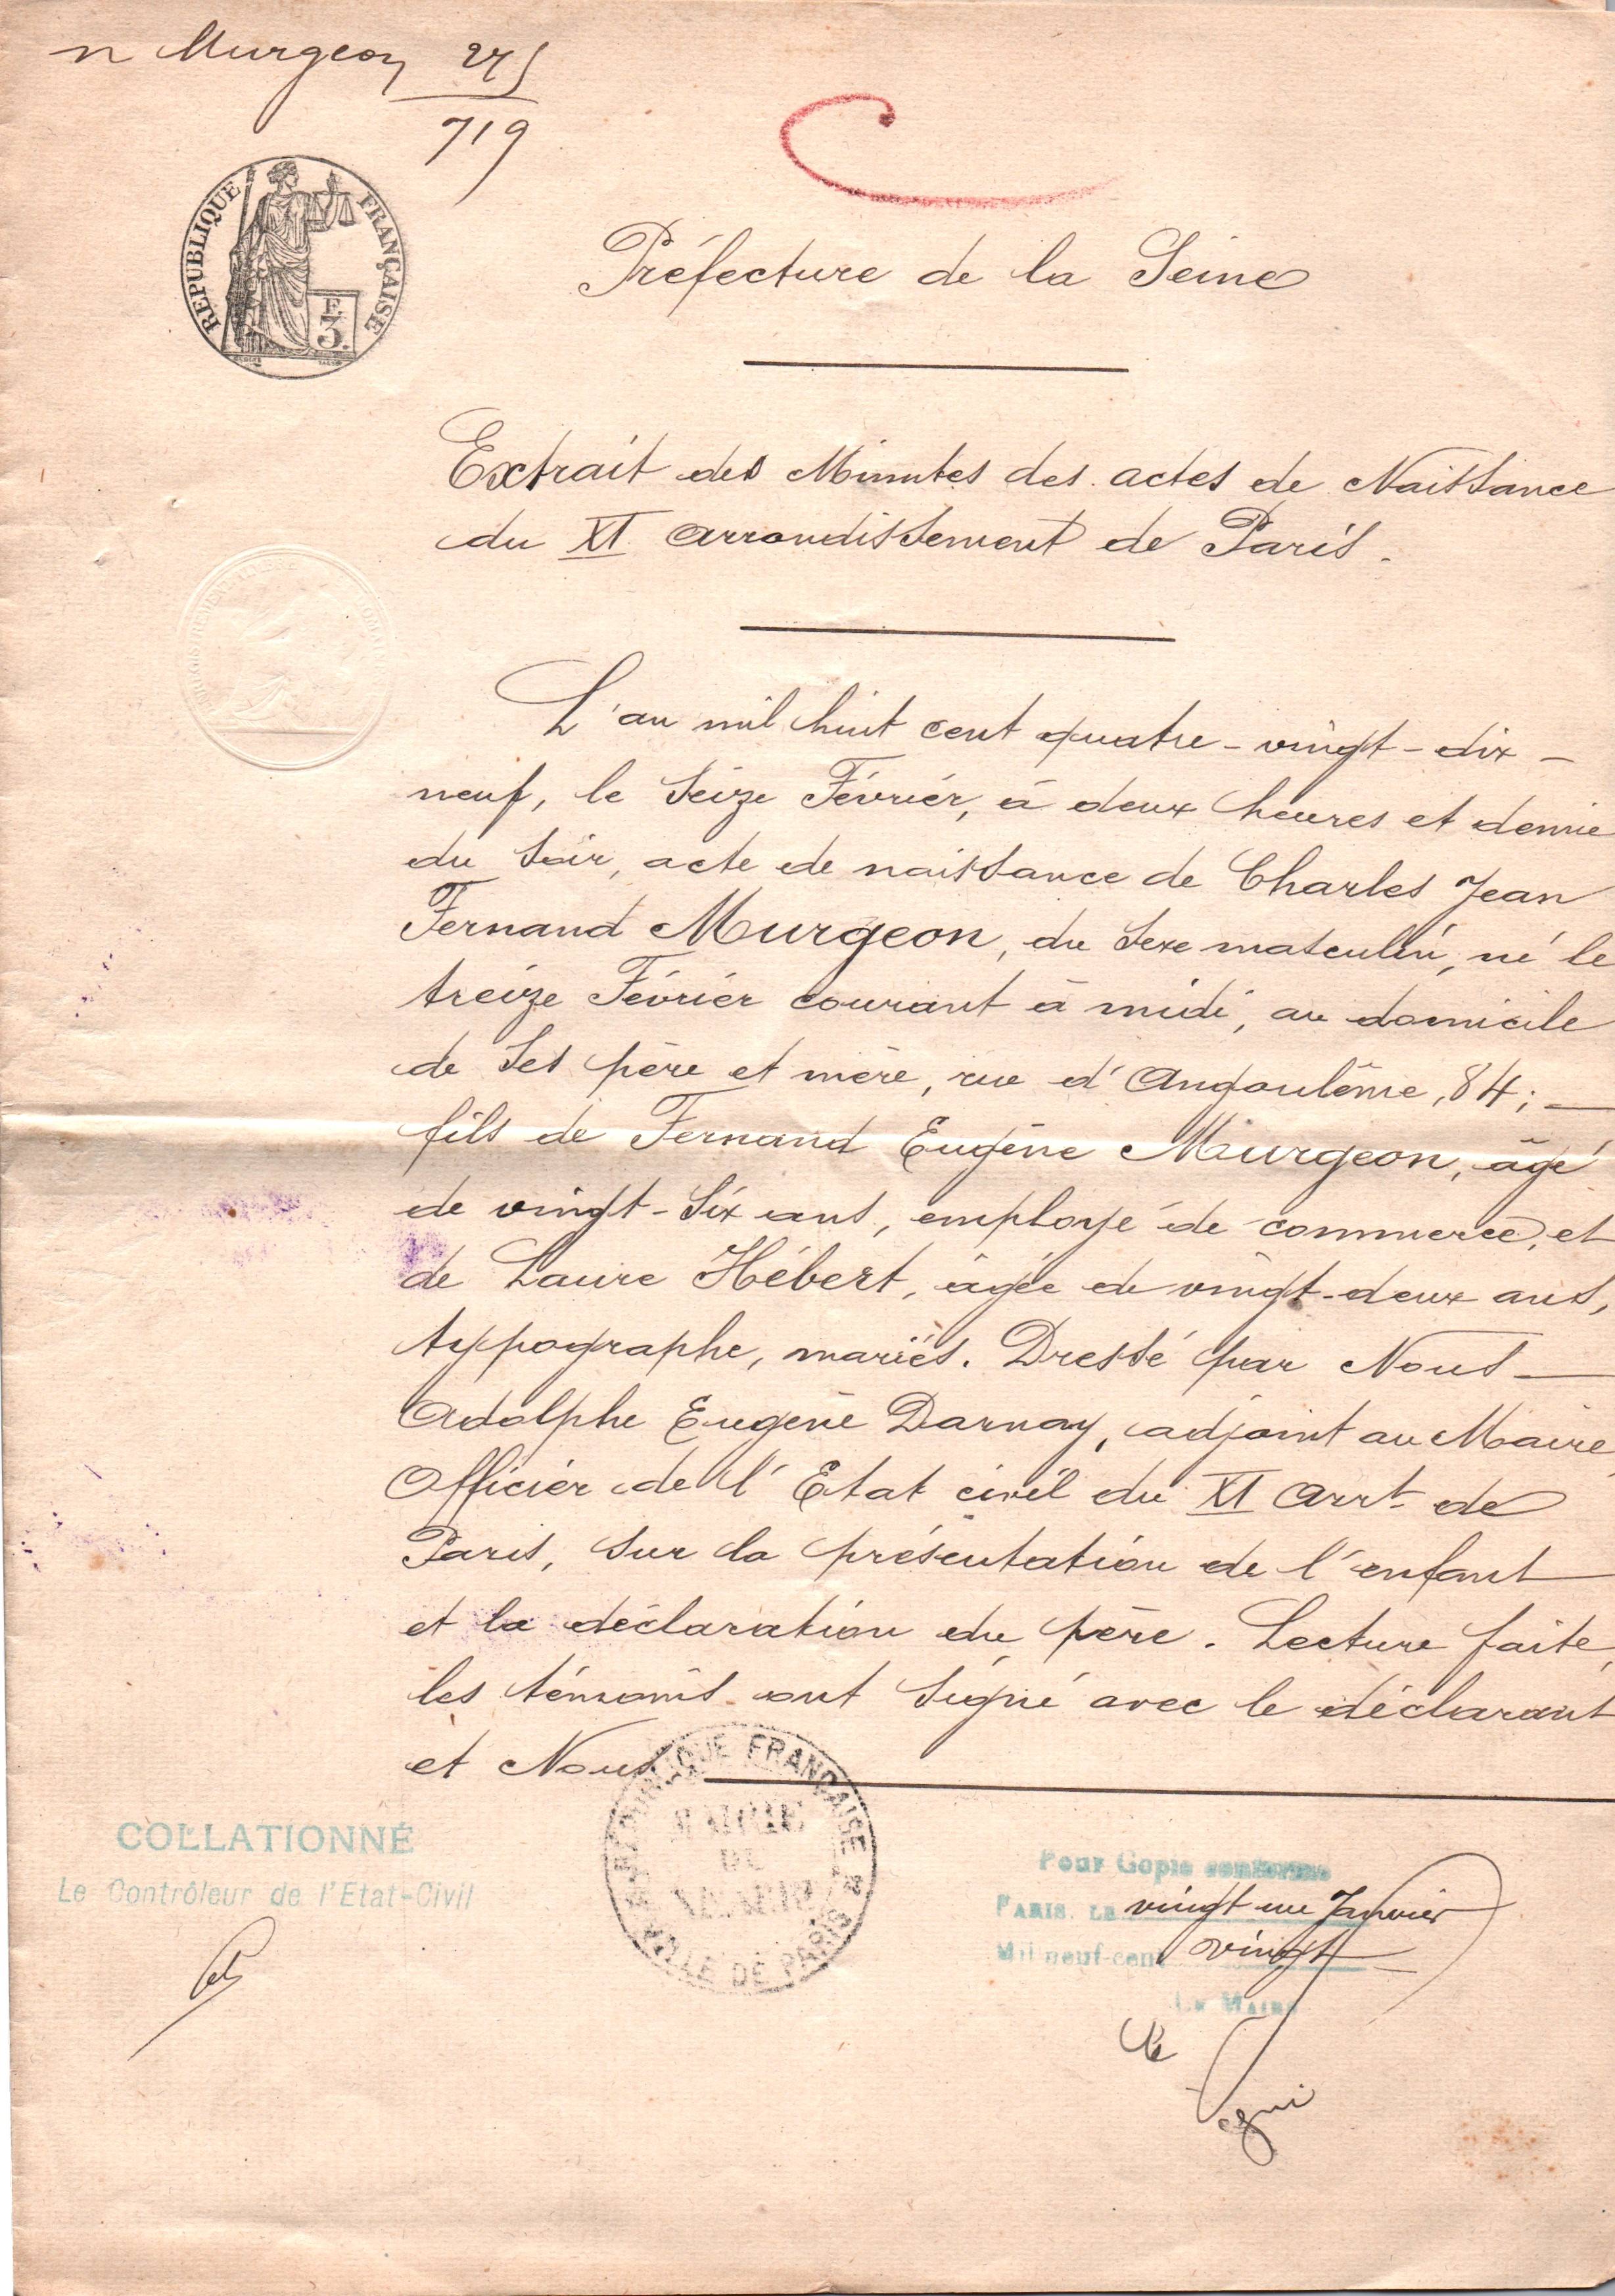 n Murgeon 275
719
RÉPUBLIQUE FRANÇAISE
F.
3.
Préfecture de la Seine
Extrait des Minutes des actes de Naissance
du XI arrondissement de Paris.
L'an mil huit cent quatre-vingt-dix-
neuf, le seize Février, à deux heures et demie
du soir, acte de naissance de Charles Jean
Fernand Murgeon, du sexe masculin, né le
treize Février courant à midi, au domicile
de ses père et mère, rue d'Angoulême, 84; —
fils de Fernand Eugène Murgeon, âgé
de vingt-six ans, employé de commerce, et
de Laure Hébert, âgée de vingt-deux ans,
typographe, mariés. Dressé par Nous —
Adolphe Eugène Darnay, adjoint au Maire
Officier de l'Etat civil du XI Arrt de
Paris, sur la présentation de l'enfant
et la déclaration du père. Lecture faite,
les témoins ont signé avec le déclarant
et Nous
RÉPUBLIQUE FRANÇAISE
MAIRIE
DU
VILLE DE PARIS
COLLATIONNÉ
Le Contrôleur de l'Etat-Civil
Pour Copie conforme
PARIS, LE vingt un Janvier
Mil neuf-cent vingt
LE MAIRE